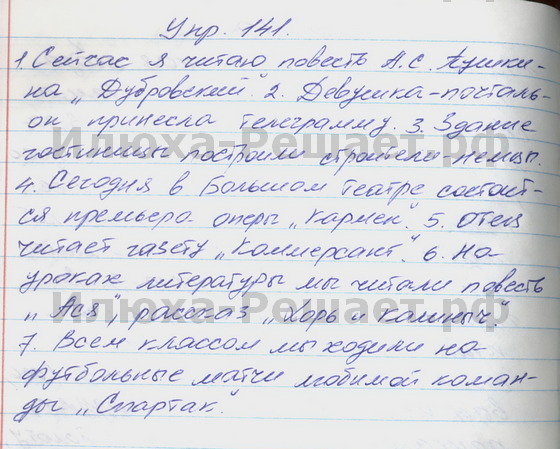 Упр. 141.
1. Сейчас я читаю повесть А.С. Пушки-
на „Дубровский". 2. Девушка-почталь-
он принесла телеграмму. 3. Здание
гостиницы построили строители-немцы.
4. Сегодня в Большом театре состоит-
ся премьера оперы „Кармен". 5. Отец
читает газету „Коммерсант". 6. На
уроках литературы мы читали повесть
„Ася", рассказ „Хорь и Калиныч".
7. Всем классом мы ходили на
футбольные матчи любимой коман-
ды „Спартак".
Илюха-Решает.рф
Илюха-Решает.рф